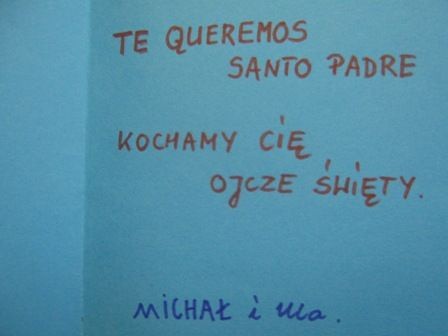 TE QUEREMOS
SANTO PADRE
KOCHAMY CIĘ
OJCZE ŚWIĘTY.
MICHAŁ i Ula.